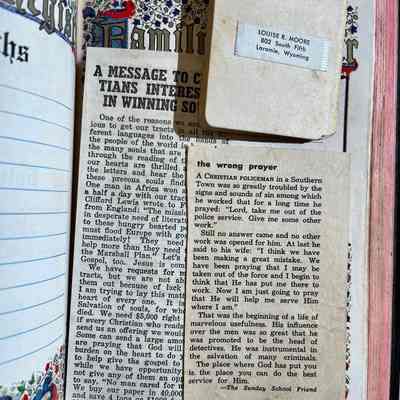 Famil
ths
LOUISE R. MOORE
802 South Fifth
Laramie, Wyoming
A MESSAGE TO C
TIANS INTERES
IN WINNING SO
One of the reasons we are
ious to get our tracts in all the
ferent languages into the hands of
the people of the world is
the many souls that are
through the reading of
our hearts are thrilled
the letters and hear the
these precious souls find
One man in Africa won
a half a day with our trac
Clifford Lewis wrote to P
from England: "The missi
in desperate need of literat
to these hungry hearted p
must flood Europe with go
immediately! They need
help more than they need
the Marshall Plan." Let's
Gospel, too. Jesus is com
We have requests for m
tracts, but we are not ab
them out because of lack
I am trying to lay this mat
heart of every one. It is
Salvation of souls, for wh
died. We need $5,000 right
if every Christian who reads
send us an offering we would
Some can send a large amo
are praying that God will
burden on the heart to do y
to help give the gospel to
while we have opportunity
not give any of them an opp
to say, "No man cared for m
We buy our paper in 40,000
and save 4 tons
the wrong prayer
A CHRISTIAN POLICEMAN in a Southern
Town was so greatly troubled by the
signs and sounds of sin among which
he worked that for a long time he
prayed: "Lord, take me out of the
police service. Give me some other
work."
Still no answer came and no other
work was opened for him. At last he
said to his wife: "I think we have
been making a great mistake. We
have been praying that I may be
taken out of the force and I begin to
think that He has put me there to
work. Now I am just going to pray
that He will help me serve Him
where I am."
That was the beginning of a life of
marvelous usefulness. His influence
over the men was so great that he
was promoted to be the head of
detectives. He was instrumental in
the salvation of many criminals.
The place where God has put you
is the place you can do the best
service for Him.
—The Sunday School Friend